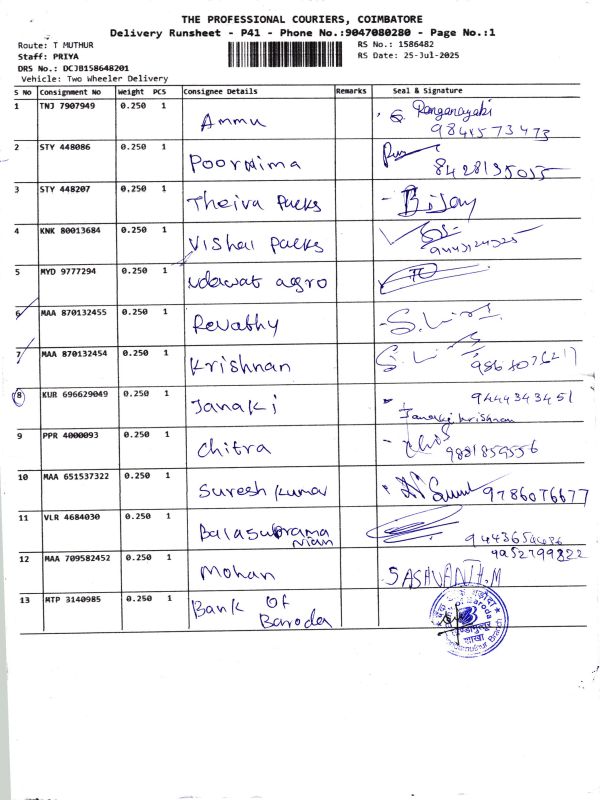 THE PROFESSIONAL COURIERS, COIMBATORE
Delivery Runsheet - P41 - Phone No.:9047080280 - Page No.:1
Route: T MUTHUR
RS No.: 1586482
Staff: PRIYA
RS Date: 25-Jul-2025
DRS No.: DCJB158648201
Vehicle: Two Wheeler Delivery
S No Consignment No Weight PCS Consignee Details Remarks Seal & Signature
1 TNJ 7907949 0.250 1 Ammu Ranganayaki
9841573473
2 STY 448086 0.250 1 Poornima 8428135055
3 STY 448207 0.250 1 Theiva Packs Bijoy
4 KNK 80013684 0.250 1 Vishal Packs
5 MYD 9777294 0.250 1 Udawat agro
6 MAA 870132455 0.250 1 Revathy
7 MAA 870132454 0.250 1 Krishnan
8 KUR 696629049 0.250 1 Janaki 9444343451
Janaki Krishnan
9 PPR 4000093 0.250 1 Chitra 9881859556
10 MAA 651537322 0.250 1 Suresh Kumar 9786076677
11 VLR 4684030 0.250 1 Balasubrama
nian
9952799822
12 MAA 709582452 1 0.250 Mohan SASHVANTH.M
13 MTP 3140985 0.250 1 Bank Of
Baroda